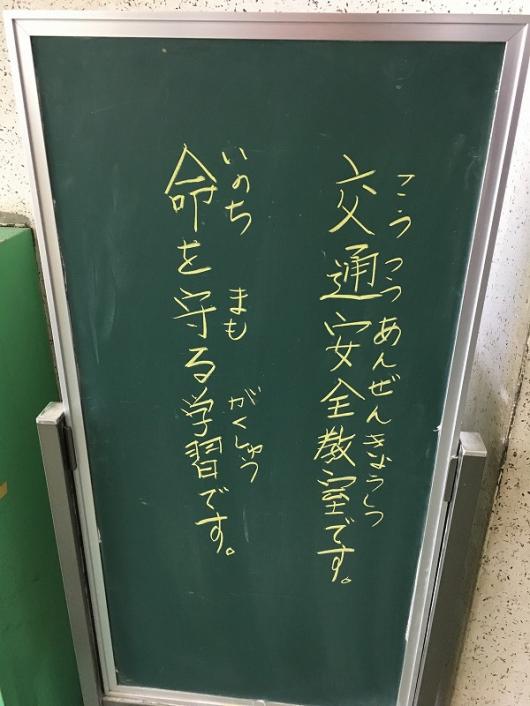 交通安全教室です。
こうつうあんぜんきょうしつ
命を守る学習です。
いのち まも がくしゅう